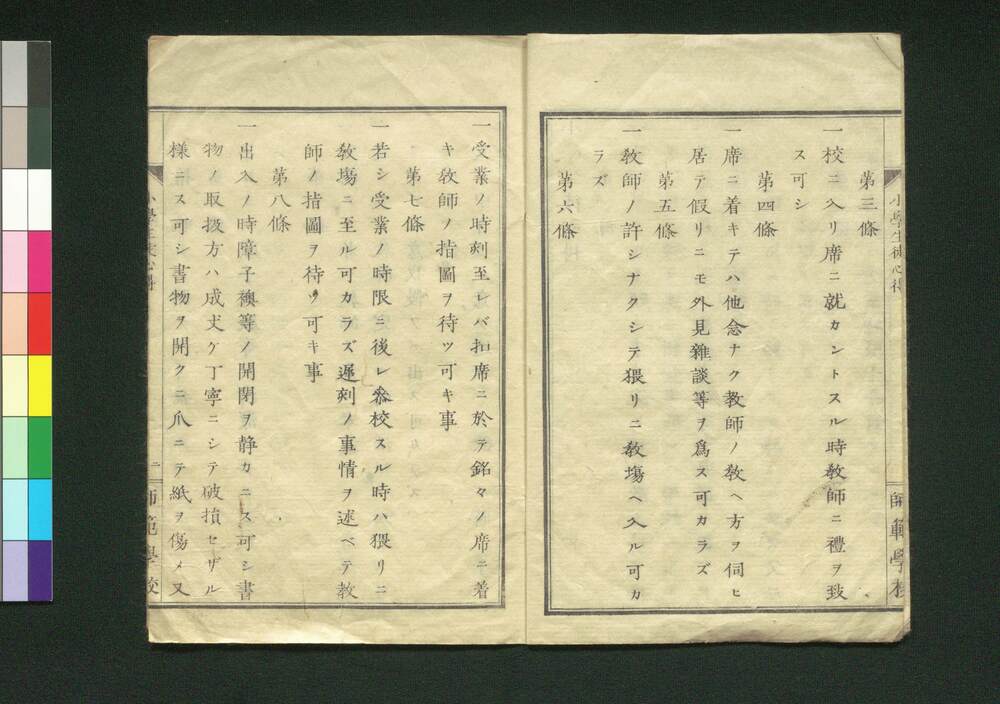 小學生徒心得
師範學校
第三條
一校ニ入リ席ニ就カントスル時教師ニ禮ヲ致
ス可シ
第四條
一席ニ着キテハ他念ナク教師ノ敎ヘ方ヲ伺ヒ
居テ假リニモ外見雜談等ヲ爲ス可カラズ
第五條
一敎師ノ許シナクシテ猥リニ敎塲ヘ入ル可カ
ラズ
第六條
一受業ノ時刻至レバ扣席ニ於テ銘々ノ席ニ着
キ敎師ノ指圖ヲ待ツ可キ事
第七條
一若シ受業ノ時限ニ後レ參校スル時ハ猥リニ
敎塲ニ至ル可カラズ遲刻ノ事情ヲ述ベテ敎
師ノ指圖ヲ待ツ可キ事
第八條
一出入ノ時障子襖等ノ開閉ヲ静カニス可シ書
物ノ取扱方ハ成丈ケ丁寧ニシテ破損セザル
樣ニス可シ書物ヲ開クニ爪ニテ紙ヲ傷メ又
小學生徒心得
二
師範學校